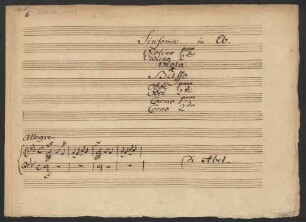 6
Sinfonia in Eb.
Violino primo
Violino 2do
Viola
Basso
Oboe primo
Oboe 2do
Corno primo
Corno 2do
Allegro.
Di Abel.